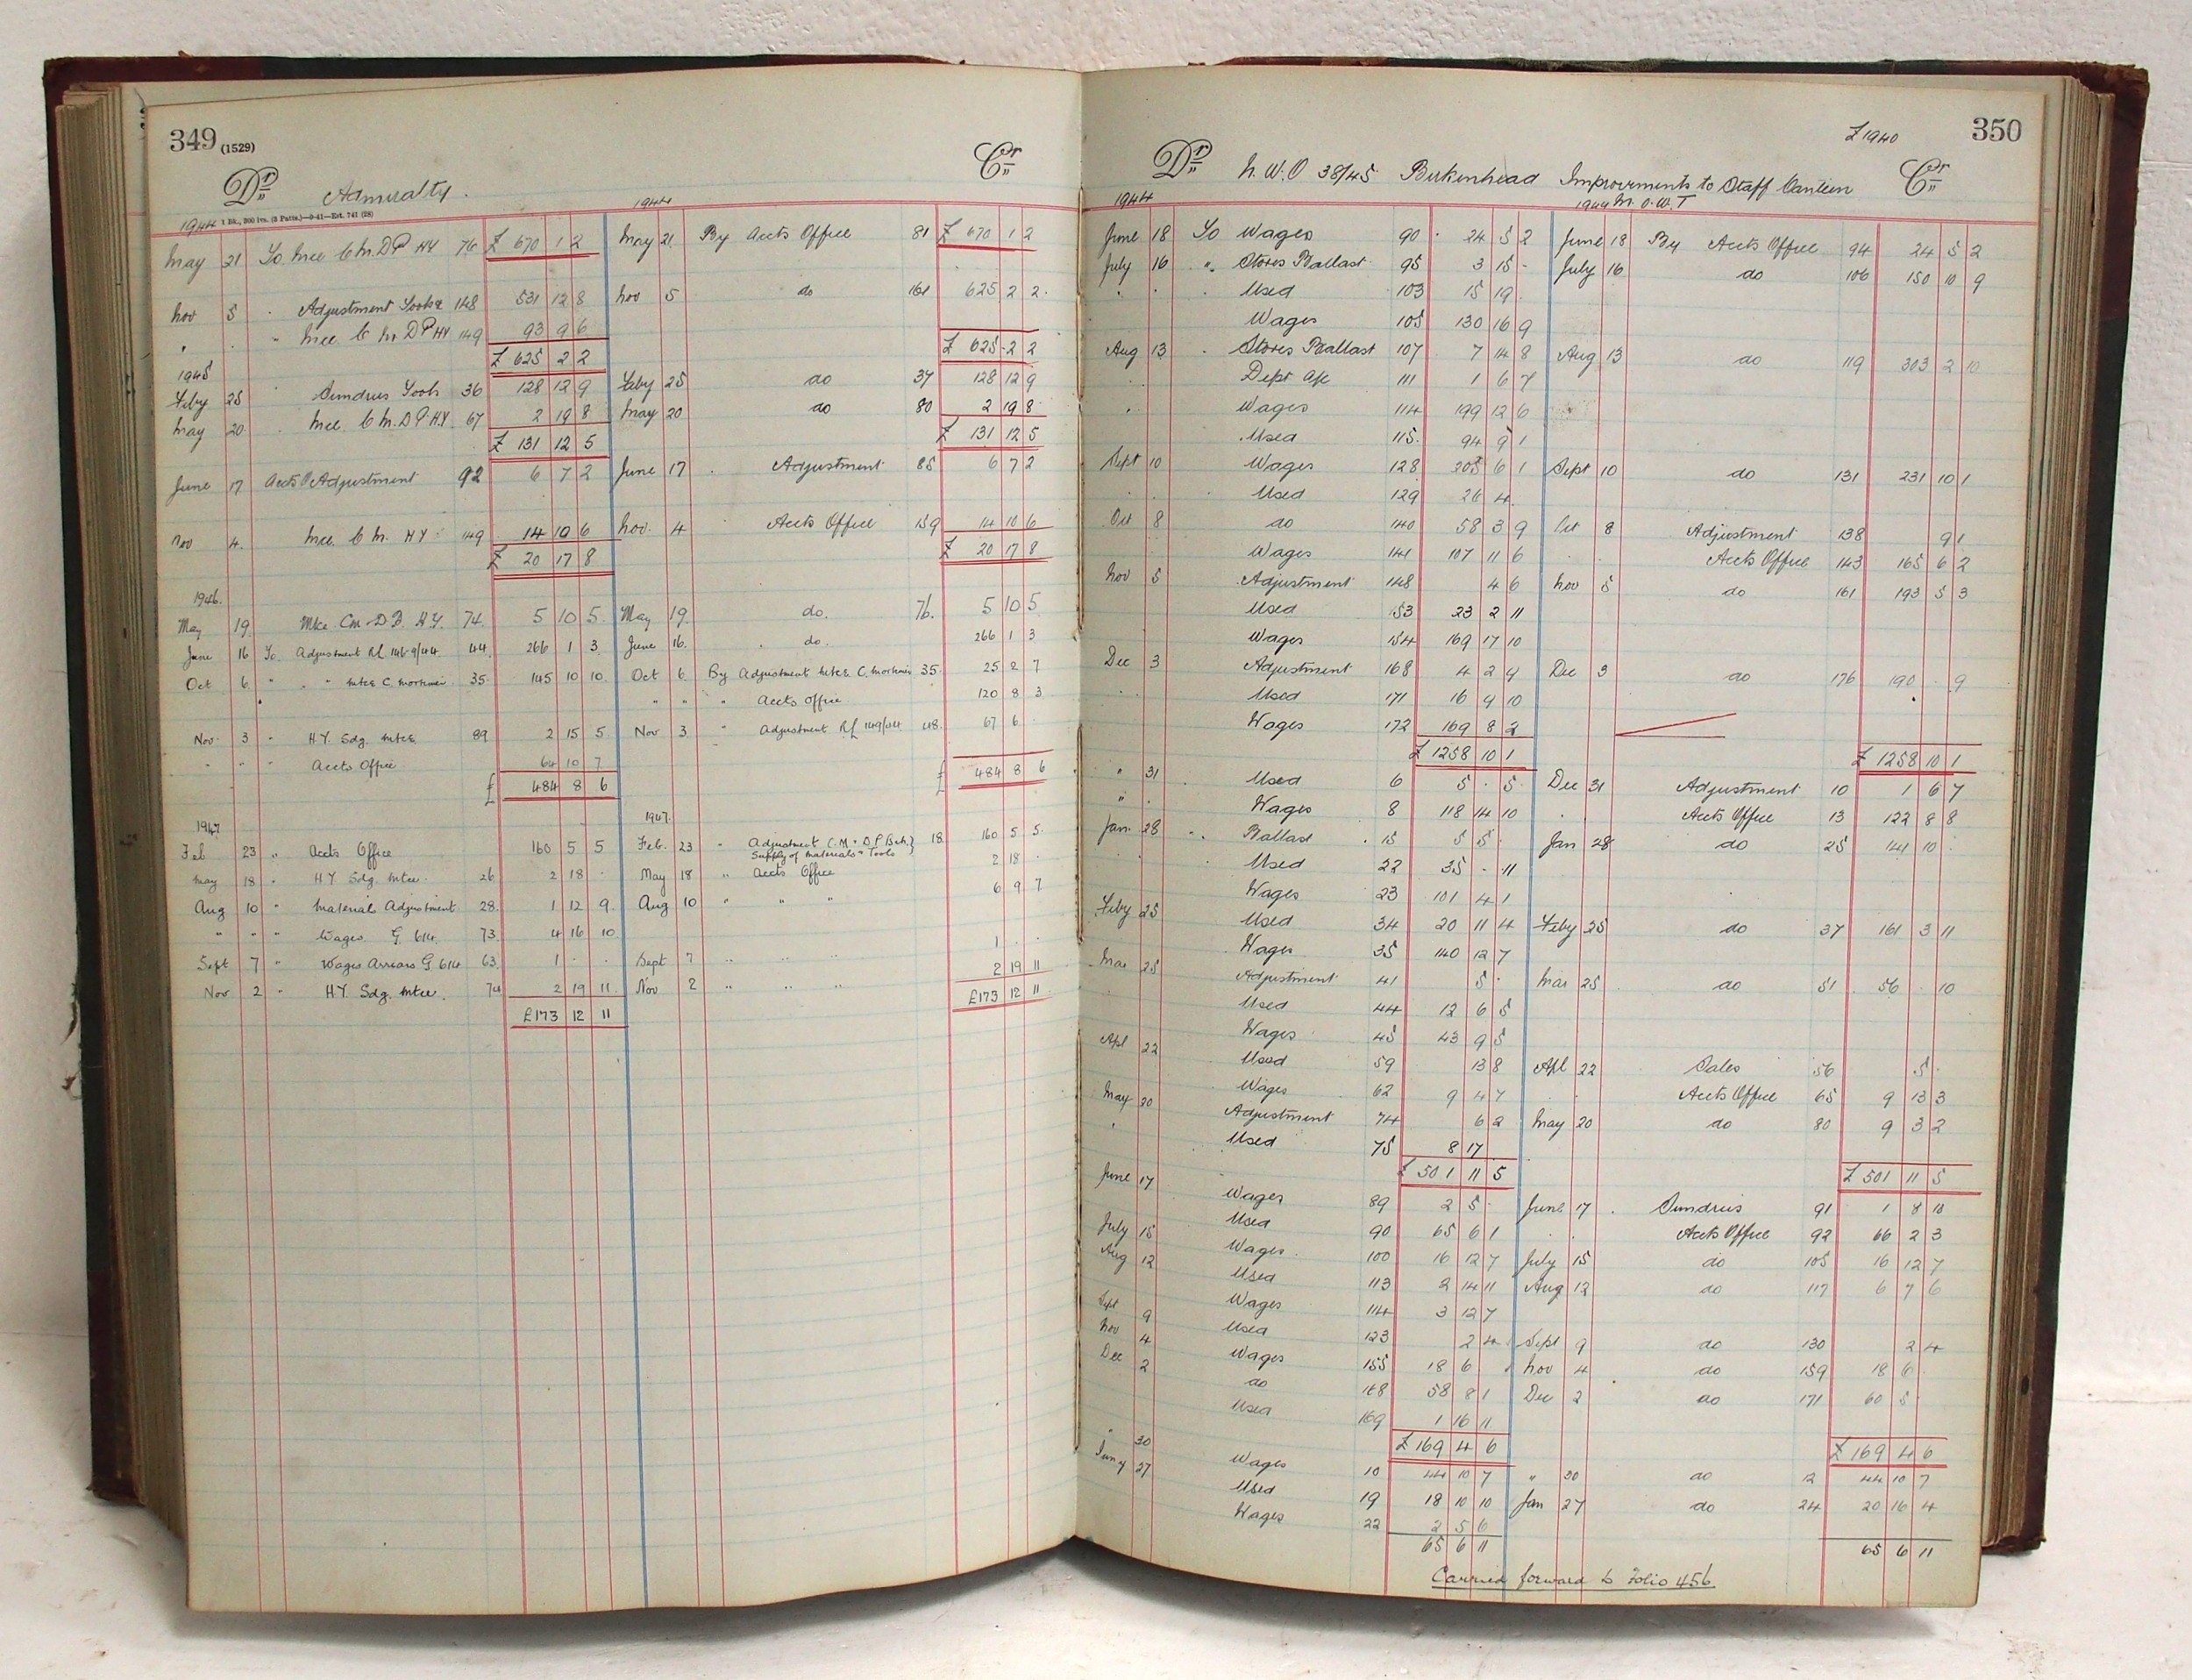 349 (1529)
Dr Admiralty. Cr
1944 1 Bk., 300 lvs. (3 Patts.)—9-41—Est. 741 (28) 1944
May 21 To 76 £ 670 1 2 May 21 By Accts Office 81 £ 670 1 2
Nov 5 Adjustment 148 531 12 8 Nov 5 do 161 625 2 2
149 93 9 6
£ 625 2 2 £ 625 2 2
1945
Feby 25 Sundries 36 128 12 9 Feby 25 do 37 128 12 9
May 20 67 2 19 8 May 20 do 80 2 19 8
£ 131 12 5 £ 131 12 5
June 17 Adjustment 92 6 7 2 June 17 Adjustment 85 6 7 2
Nov 4 149 14 10 6 Nov. 4 Accts Office 159 14 10 6
£ 20 17 8 £ 20 17 8
1946.
May 19 74 5 10 5 May 19 do. 76. 5 10 5
June 16 To Adjustment 44 266 1 3 June 16. do. 266 1 3
Oct 6 " " " 35 145 10 10 Oct 6 By Adjustment 35 25 2 7
" " " Accts Office 120 8 3
Nov 3 " H.Y. Sdg. Mtce 89 2 15 5 Nov 3 " Adjustment 48 67 6
" " " Accts Office 64 10 7
£ 484 8 6 £ 484 8 6
1947 1947.
Feb 23 " Accts Office 160 5 5 Feb. 23 " Adjustment 18 160 5 5
Supply of Materials + Tools
May 18 " H Y Sdg. Mtce. 26 2 18 May 18 " Accts Office 2 18
Aug 10 " Material Adjustment 28 1 12 9 Aug 10 " " " 6 9 7
" " " Wages G 614 73 4 16 10
Sept 7 " Wages Arrears G 614 63 1 Sept 7 " " " 1
Nov 2 " H Y Sdg. Mtce. 74 2 19 11 Nov 2 " " " 2 19 11
£173 12 11 £173 12 11
£1940 350
Dr N.W.O 38/45 Birkenhead Improvements to Staff Canteen Cr
1944 1944 M.O.W.T
June 18 To Wages 90 24 5 2 June 18 By Accts Office 94 24 5 2
July 16 " Stores Ballast 95 3 15 - July 16 do 106 150 10 9
Used 103 15 19
Wages 105 130 16 9
Aug 13 Stores Ballast 107 7 14 8 Aug 13 do 119 303 2 10
Dept 111 1 6 7
Wages 114 199 12 6
Used 115 94 9 1
Sept 10 Wages 128 205 6 1 Sept 10 do 131 231 10 1
Used 129 26 4
Oct 8 do 140 58 3 9 Oct 8 Adjustment 138 9 1
Wages 141 107 11 6 Accts Office 143 165 6 2
Nov 5 Adjustment 148 4 6 Nov 5 do 161 193 5 3
Used 153 23 2 11
Wages 154 169 17 10
Dec 3 Adjustment 168 4 2 9 Dec 3 do 176 190 . 9
Used 171 16 9 10
Wages 172 169 8 2
£ 1258 10 1 £ 1258 10 1
" 31 Used 6 5 . 5 Dec 31 Adjustment 10 1 6 7
" Wages 8 118 14 10 Accts Office 13 122 8 8
Jan 28 Ballast 15 5 5 Jan 28 do 25 141 10
Used 22 35 - 11
Wages 23 101 4 1
Feby 25 Used 34 20 11 4 Feby 25 do 37 161 3 11
Wages 35 140 12 7
Mar 25 Adjustment 41 5 Mar 25 do 51 56 . 10
Used 44 12 6 5
Wages 45 43 9 5
Apl 22 Used 59 13 8 Apl 22 Sales 56 5
Wages 62 9 4 7 Accts Office 65 9 13 3
May 20 Adjustment 74 6 2 May 20 do 80 9 3 2
Used 75 8 17
£ 501 11 5 £ 501 11 5
June 17 Wages 89 2 5 June 17 Sundries 91 1 8 10
Used 90 65 6 1 Accts Office 92 66 2 3
July 15 Wages 100 16 12 7 July 15 do 105 16 12 7
Aug 12 Used 113 2 14 11 Aug 12 do 117 6 7 6
Wages 114 3 12 7
Sept 9 Used 123 2 4 Sept 9 do 130 2 4
Nov 4 Wages 155 18 6 Nov 4 do 159 18 6
Dec 2 do 168 58 8 1 Dec 2 do 171 60 5
Used 169 1 16 11
£ 169 4 6 £ 169 4 6
" 30 Wages 10 44 10 7 " 30 do 12 44 10 7
Jany 27 Used 19 18 10 10 Jan 27 do 24 20 16 4
Wages 22 2 5 6
65 6 11 65 6 11
Carried forward to Folio 456